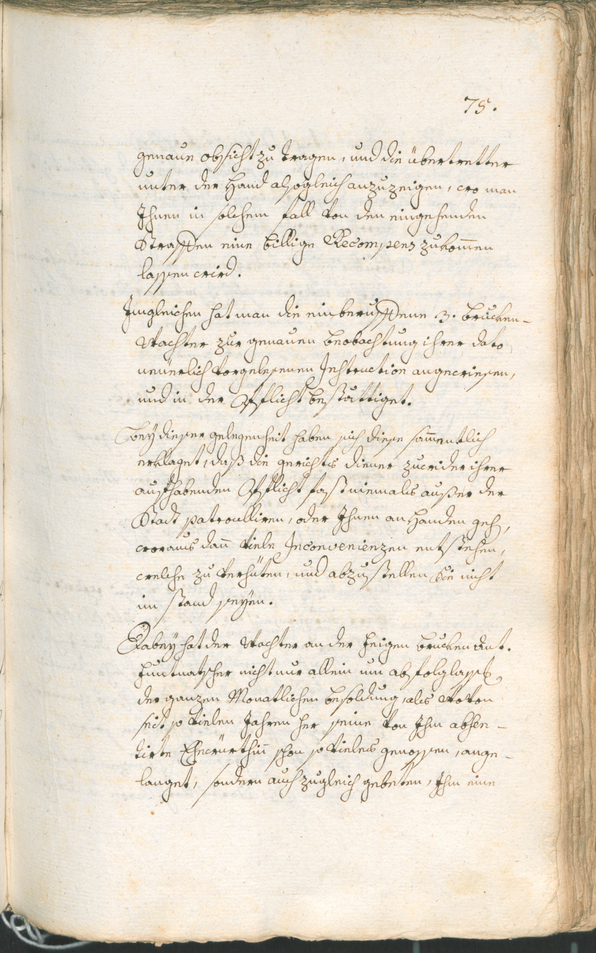 75.
genaue obsicht zu tragen, und die übertretter
unter der Hand alsogleich anzuzeigen, wo man
Ihnen in solchem fall von den eingehenden
Straffen eine billige Recompens zukom̄en
lassen wird.
Ingleichen hat man die einberuffene 3. brucken-
wachter zur genauen beobachtung ihrer dato
neuerlich vorgelesenen Instruction angewiesen,
und in der Pflicht bestättiget.
Bey dieser gelegenheit haben sich diese sam̄entlich
erklaget, daß die gerichts diener zuwider ihrer
aufhabenden Pflicht fast niemals außer der
Stadt patroulliren, oder Ihnen an Handen geh,
woraus dan̄ viele Inconvenienzen entstehen,
welche zu verhüten, und abzustellen Sie nicht
im stand seyen.
Dabey hat der wachter an der feigen brucken Ant.
nicht nur allein um abfolglassg
der ganzen Monatlichen besoldung, als wovon
seit so vielen Jahren her seine von Ihm absen-
tirte Ehewürthin̄ schon so vieles genossen, ange-
langet, sondern auch zugleich gebeten, Ihm eine